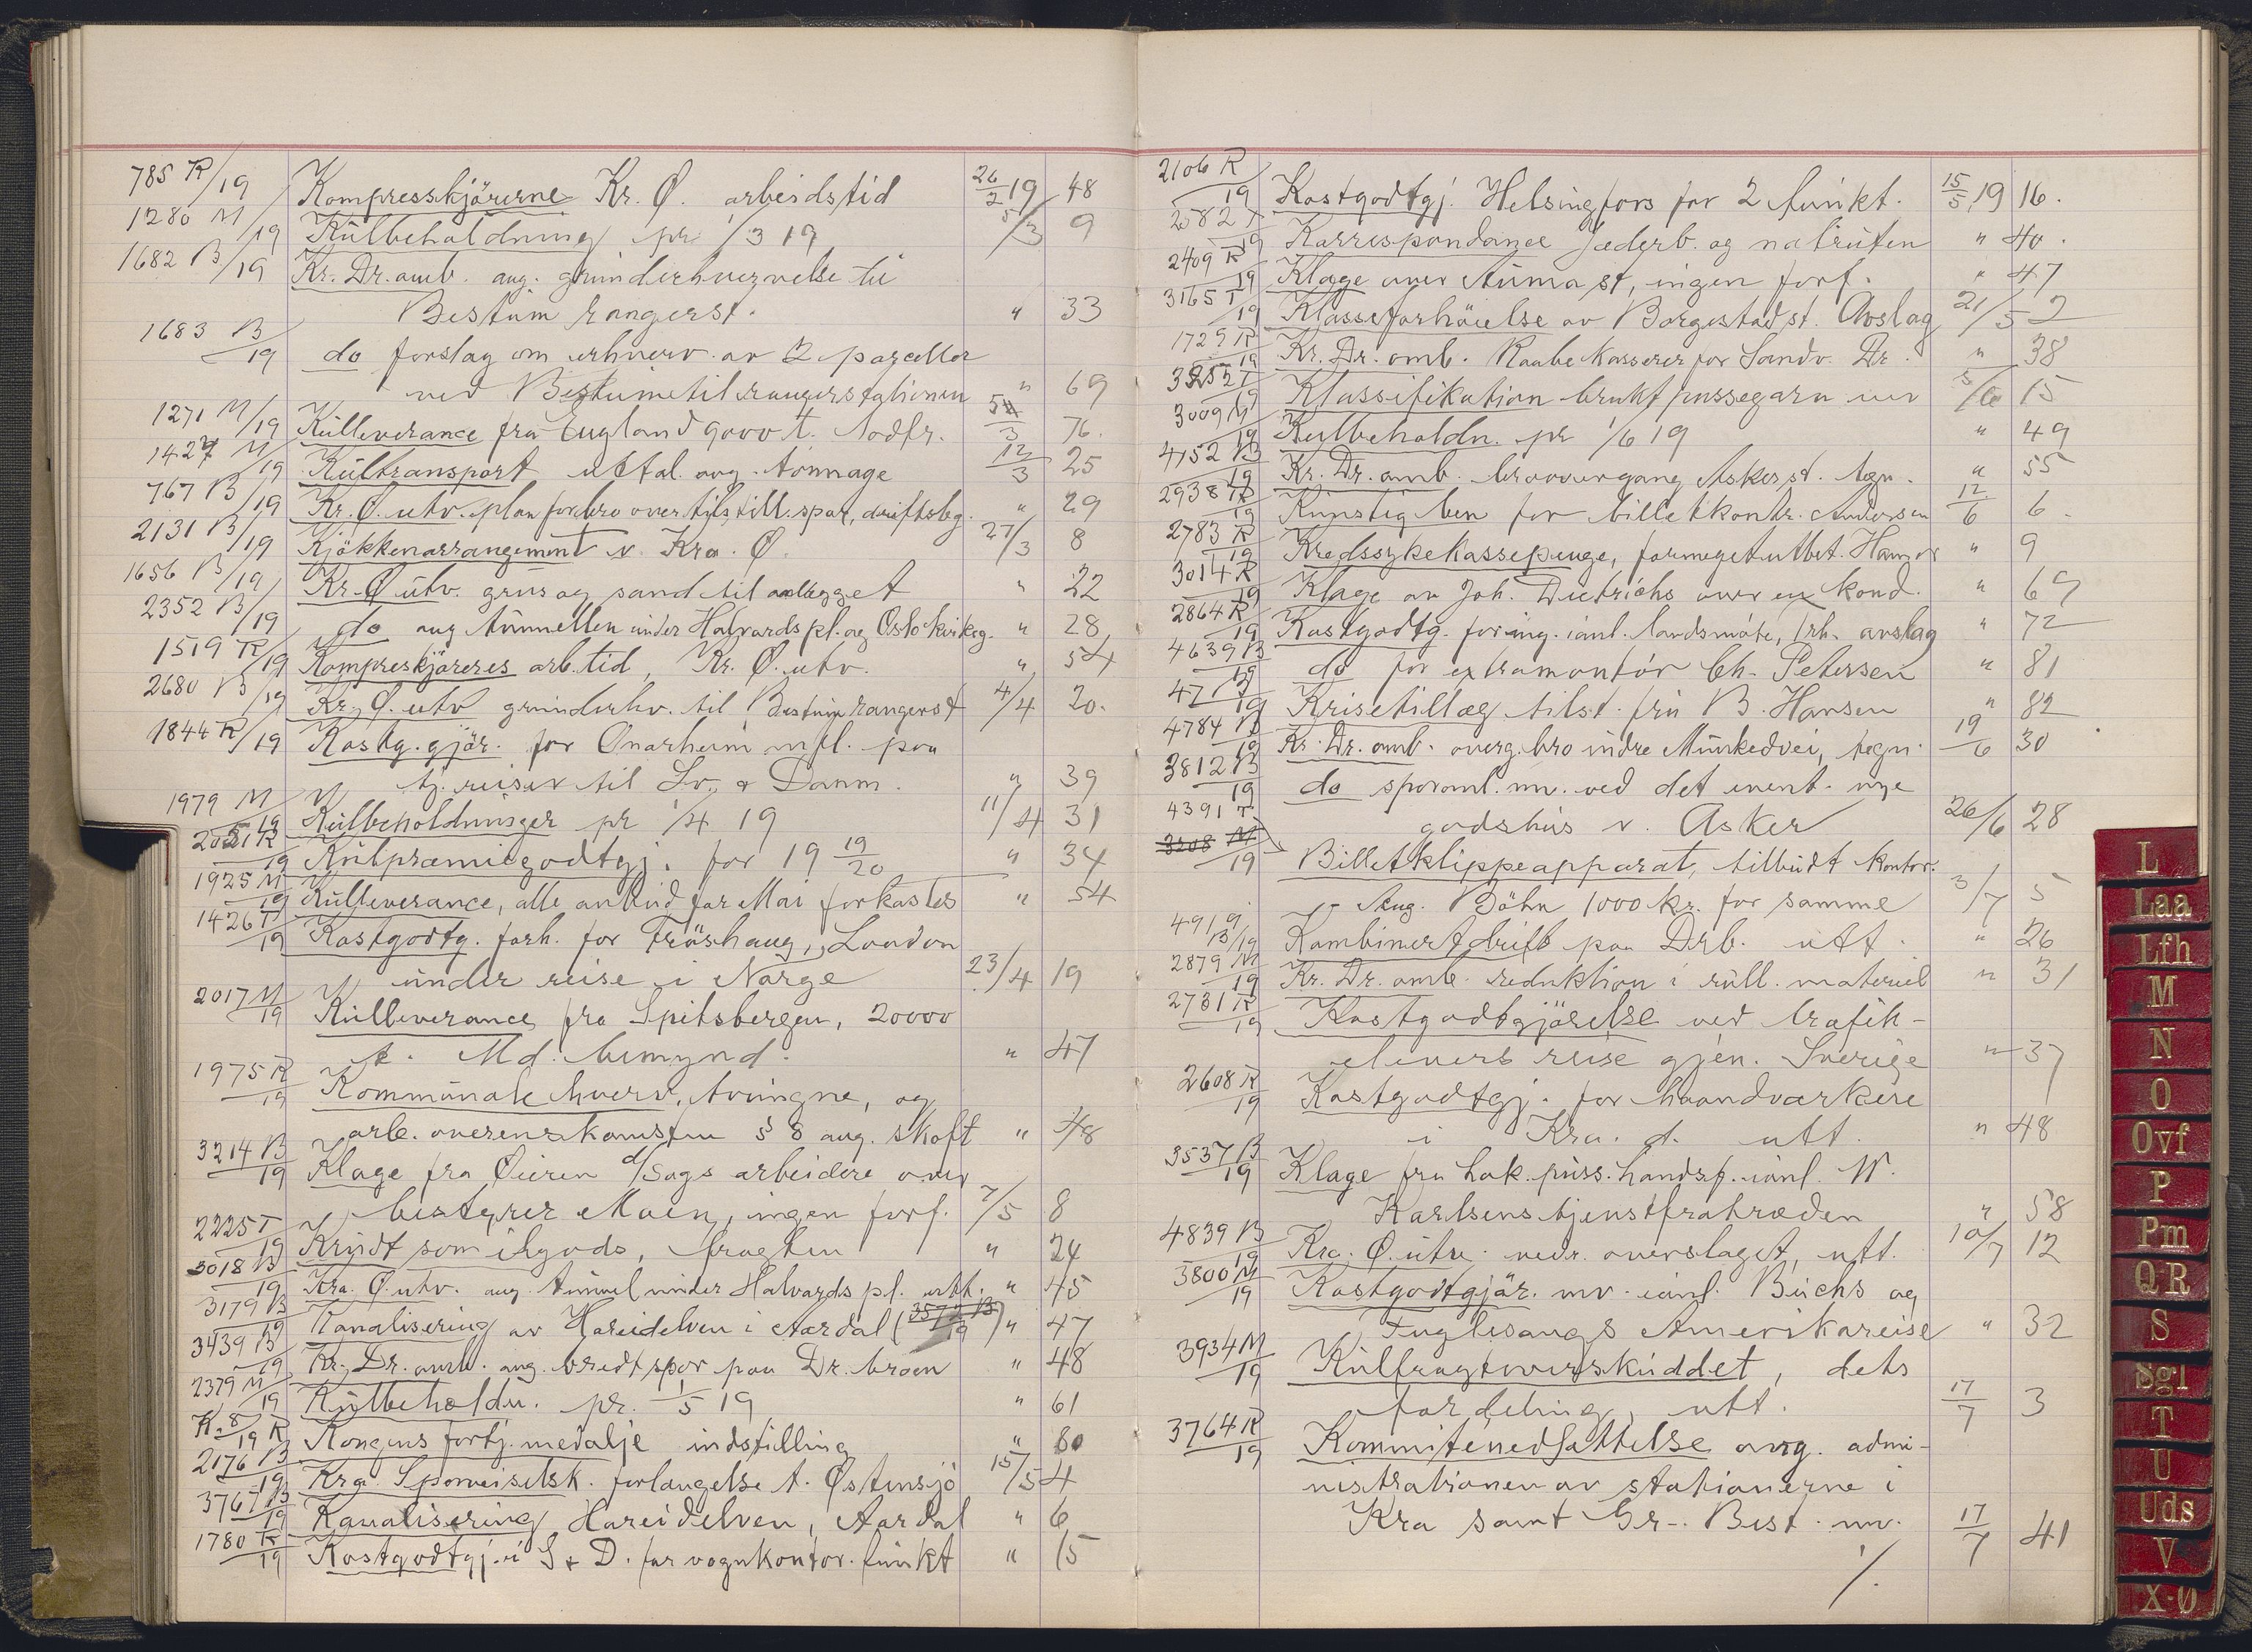 785 R/19 Kompresskjörerne Kr. Ø. arbeidstid 26/2 19 48
1280 M/19 Kulbeholdning pr 1/3 19 5/3 9
1682 B/19 Kr. Dr. amb. ang. grunderhvervelse til
Bestum rangerst. " 33
1683 B/19 do forslag om erhverv. av 2 parceller
ved Bestum til rangerstationen " 69
1271 M/19 Kulleverance fra England 9000 t. Nodfr. 5/3 76.
1427 M/19 Kultransport uttal. ang. tonnage 12/3 25
767 B/19 Kr. Ø. utv. plan for bro over tils till. spor, driftsbg. " 29
2131 B/19 Kjökkenarrangement v. Kra. Ø. 27/3 8
1656 B/19 Kr. Ø utv. grus og sand til anlægget " 22
2352 B/19 do ang tunnellen under Halvards pl. og Oslo kirkeg. " 28
1519 R/19 Kompreskjöreres arb. tid, Kr. Ø. utv. " 54
2680 B/19 Kr. Ø. utv grunderhv. til Bestum rangerst 4/4 20.
1844 R/19 Kostg. gjör. for Onarheim mfl. paa
tj. reiser til Sv. & Danm. " 39
1979 M/19 Kulbeholdninger pr 1/4 19 11/4 31
2021 R/19 Kulpræmiegodtgj. for 19 19/20 " 34
1925 M/19 Kulleverance, alle anbud for Mai forkastes " 54
1426 T/19 Kostgodtg. forh. for Fröshaug, London
under reise i Norge 23/4 19
2017 M/19 Kulleverance fra Spitsbergen, 20000
t. Md. bemynd. " 47
1975 R/19 Kommunale hverv, tvungne, og
arb. overenskomsten § 8 ang. skoft " 48
3214 B/19 Klage fra Øieren d/Sags arbeidere over
bestyrer Moen, ingen forf. 7/5 8
2225 T/19 Krudt som ilgods, fragten " 24
3018 B/19 Kra. Ø. utv. ang. tunnel under Halvards pl. utt. " 45
3179 B/19 Kanalisering av Hareidelven i Aardal (3572 B/19) " 47
3439 B/19 Kr. Dr. amb. ang. bredt spor paa Dr. broen " 48
2379 M/19 Kulbeholdn. pr. 1/5 19 " 61
K. 8/19 R Kongens fortj. medalje indstilling " 80
2176 B/19 Kra Sporveiselsk. forlængelse t. Østensjö 15/5 4
3767 B/19 Kanalisering Hareidelven, Aardal " 6
1780 R/19 Kostgodtgj. i S & D. for vognkontor. funkt " 15
2106 R/19 Kostgodtgj. Helsingfors for 2 funkt. 15/5 19 16.
2582 T/19 Korrespondance Jæderb. og natruten " 40.
2409 R/19 Klage over Auma st, ingen forf. " 47
3165 T/19 Klasseforhöielse av Borgestad st. Avslag 21/5 2
1729 R/19 Kr. Dr. omb. Raabe kasserer for Sandv. Dr. " 38
3252 T/19 Klassifikation brukt pussegarn 5/6 15
3009 M/19 Kulbeholdn. pr 1/6 19 " 49
4152 B/19 Kr. Dr. amb. broovergang Asker st. tegn. " 55
2938 R/19 Kunstig ben for billetkontr. Andersen 12/6 6.
2783 R/19 Kredssykekassepenge, formeget utbet. Hamar " 9
3014 R/19 Klage av Joh. Dietrichs over en kond. " 69
2864 R/19 Kostgodtg. for ing. ianl. landsmöte, Trh. avslag " 72
4639 B/19 do for extramontör Ch. Petersen " 81
47 B/19 Krisetillæg tilst. fru B. Hansen " 82
4784 B/19 Kr. Dr. omb. overg. bro indre Munkedvei, tegn. 19/6 30
3812 B/19 do sporoml. mv. ved det event. nye
godshus v. Asker 26/6 28
4391 T
3208 M/19 Billetklippeapparat, tilbudt kontor.
Aug. Böhn 1000 kr. for samme 3/7 5
4919 B/19 Kombinert drift paa Drb. utt. " 26
2879 M/19 Kr. Dr. omb. reduktion i rull. materiel " 31
2731 R/19 Kostgodtgjörelse ved trafik-
elevers reise gjen. Sverige " 37
2608 R/19 Kostgodtgj. for haandverkere
i Kra. d. utt. " 48
3537 B/19 Klage fra lok. puss. handsf. ianl. W.
Karlsens tjenstfratræden " 58
4839 B/19 Kra. Ø. utv. vedr. overslaget, utt. 10/7 12
3800 M/19 Kostgodtgjör. mv. ianl. Buchs og
Fuglesangs Amerikareise " 32
3934 M/19 Kulfragtoverskuddet, dets
fordeling, utt. 17/7 3
3764 R/19 Kommitenedsættelse ang. admi-
nistrationen av stationerne i
Kra samt Gr-. Best. mv. 17/7 41
%
L
Laa
Lfh
M
N
O
Ovf
P
Pm
QR
S
Sgl
T
U
Uds
V
X-Ø